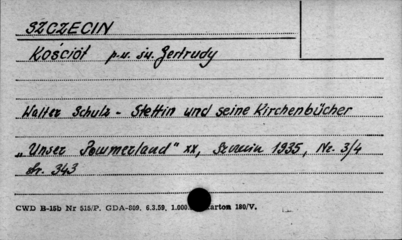 SZCZECIN
Kościół p.w. św. Gertrudy
Walter Schulz - Stettin und seine Kirchenbücher
„Unser Pommerland" XX, Szczecin 1935, Nr. 3/4
str. 343
CWD B-15b Nr 515/P. GDA-509. 6.3.59, 1.000 Karton 180/V.